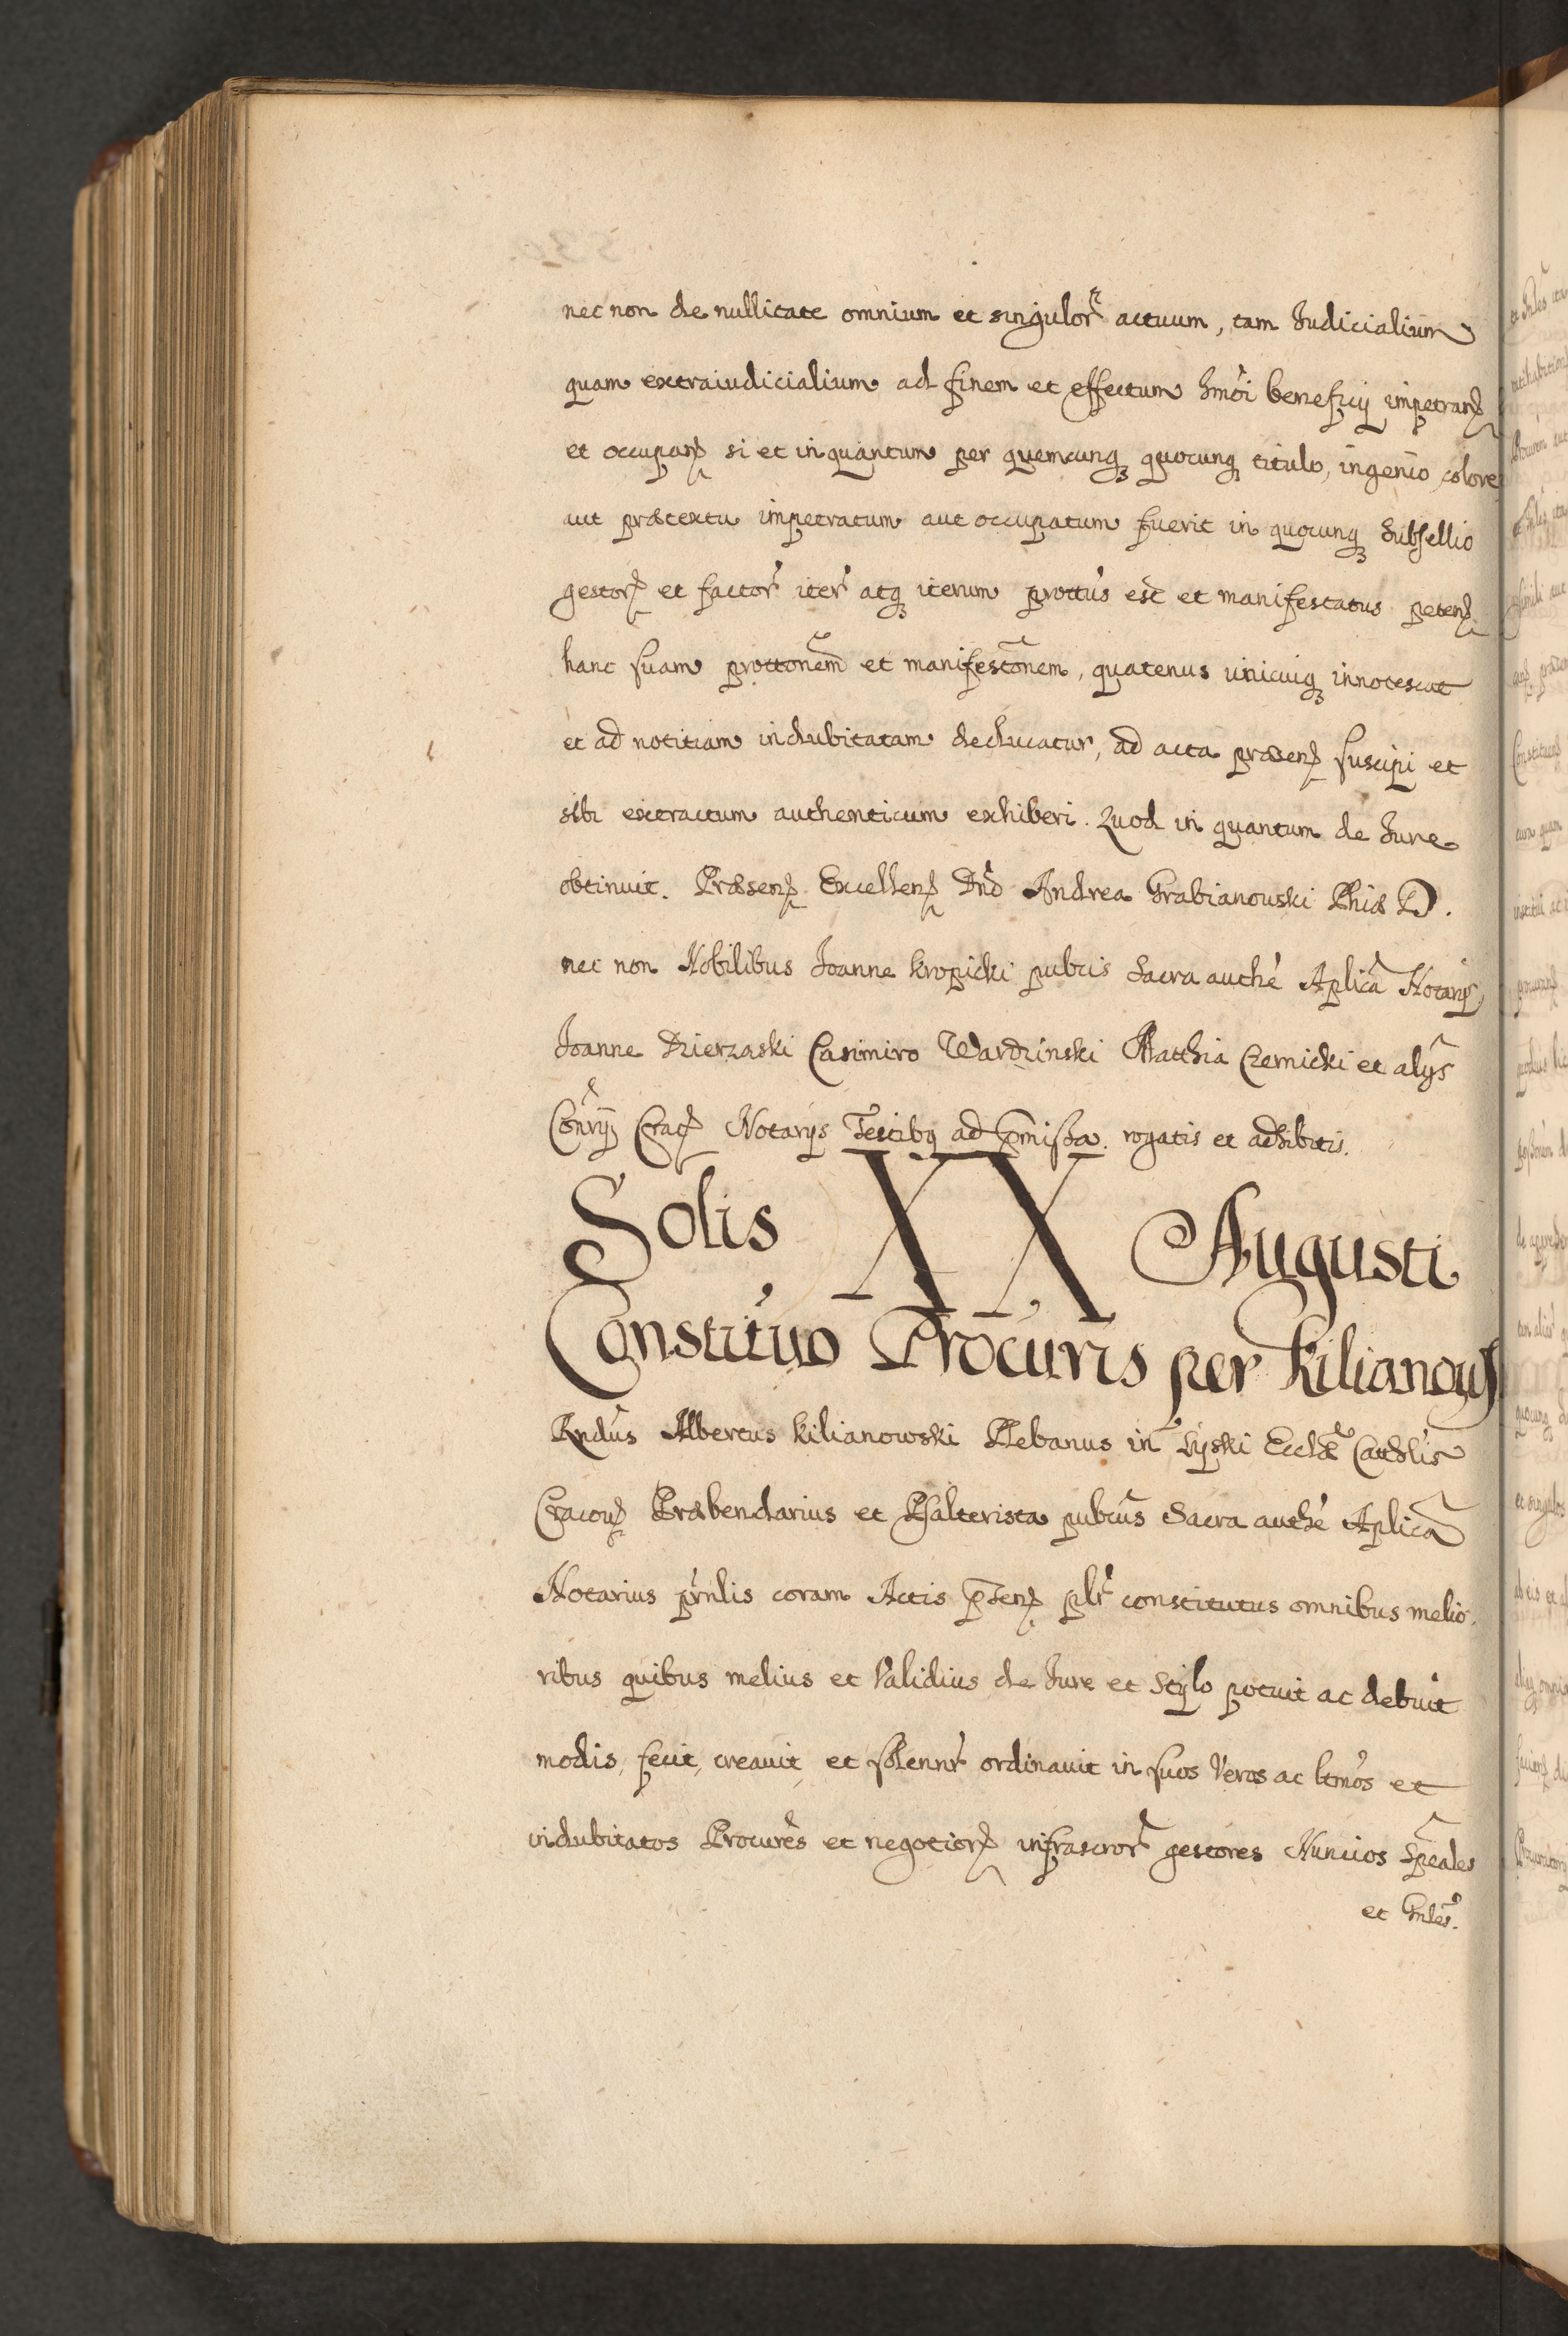 nec non de nullitate omnium et singulor̃ actuum, tam Judicialium
quam extraiudicialium ad finem et effectum hmōi beneficij impetranꝭ
et occupanꝭ si et inquantum per quemcunqꝫ quocunqꝫ titulo, ingenio colore
aut prætextu impetratum aut occupatum fuerit in quocunqꝫ Subsellio
gestorꝭ et factor̃ iter̃ atqꝫ iterum prottũs est et manifestatus petenꝭ
hanc suam prottonem̃ et manifestõnem, quatenus unicuiqꝫ innotescat
et ad notitiam indubitatam deducatur, ad acta præsenꝭ suscipi et
sibi extractum authenticum exhiberi. Quod in quantum de Jure
obtinuit. Præsenꝭ Excellenꝭ Dño Andrea Grabianouski Phiæ D.
nec non Nobilibus Joanne Kropicki pubcis Sacra authẽ Aplicã Notarijs
Joanne Dzierzaski Casimiro Wardzinski Matthia Czernicki et alijs
Conr̃ij Cracꝭ Notarijs Testibꝫ ad p̃missa rogatis et adhibitis.
Solis XX Augusti
Constitũo Procuris per Kilianows
Rndũs Albertus Kilianowski Plebanus in Lyski Ecclæ Cathlis
Cracouꝭ Præbendarius et Psalterista pubcũs Sacra authẽ Aplicã
Notarius pr̃nlis coram Actis p̃senꝭ plr̃ constitutus omnibus melio
ribus quibus melius et Validius de Jure et stylo potuit ac debuit
modis, fecit, creauit, et solennr̃ ordinauit in suos Veros ac ltmõs et
indubitatos Procurẽs et negotiorꝭ infrascror̃ gestores Nuncios Sp̃eales
et Gnlẽs.